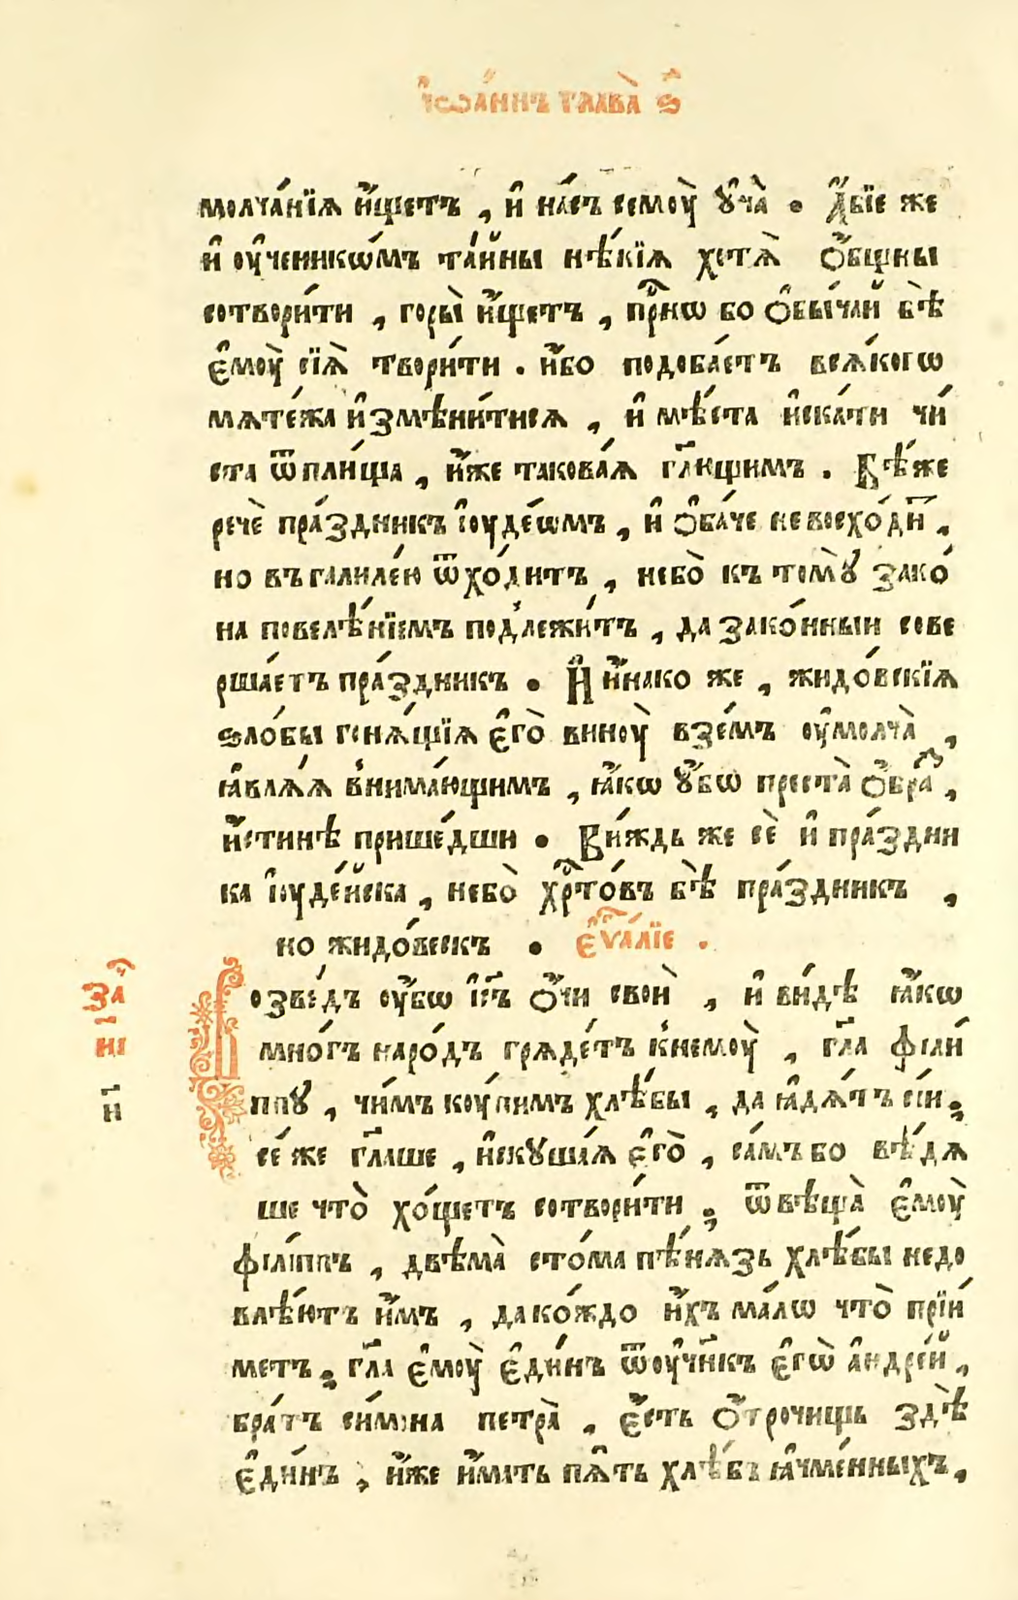 і҆ѡа́ннъ глава̀ ѕ҃
молча́нїѧ и҆́щетъ , и҆ на́съ семоу̀ ᲂу҆ча̀ . А҆́бїе же
и҆ оу҆ченикѡ́мъ та́йны нѣ́кїѧ хотѧ̀ ѻ҆́бщны
сотвори́ти , горы̀ и҆́щетъ , при́снѡ бо ѻ҆бы́чай бѣ̀
є҆моу̀ сїѧ̀ твори́ти . и҆́бо подоба́етъ всѧ́когѡ
мѧте́жа и҆змѣни́тисѧ , и҆ мѣ́ста и҆ска́ти чи́
ста ѿ пли́ща , и҆́же такова́ѧ гл҃ющимъ . Бѣ́ же
речѐ пра́здникъ і҆оуде́ѡмъ , и҆ ѻ҆ба́че не восхо́дит ,
но въ галиле́ю ѿхо́дитъ , небо̀ къ томꙋ̀ зако́
на повелѣ́нїемъ подлежи́тъ , да зако́нный сове
рша́етъ пра́здникъ . И҆ и҆́нако же , жидо́вскїѧ
ѕло́бы гонѧ́щїѧ є҆го̀ виноу̀ взе́мъ оу҆молча̀ ,
ꙗ҆влѧ́ѧ внима́ющимъ , ꙗ҆́кѡ ᲂу҆́бѡ преста̀ ѻ҆́браз ,
и҆́стинѣ прише́дши . Ви́ждь же сѐ и҆ пра́здни
ка і҆оуде́йска , небо̀ хрⷭ҇то́въ бѣ̀ пра́здникъ ,
но жидо́вскъ . є҆ѵⷢ҇а́лїе .
Возве́дъ оу҆́бѡ і҆с҃ъ ѻ҆́чи своѝ , и҆ ви́дѣ ꙗ҆́кѡ
за
н҃і
мно́гъ наро́дъ грѧде́тъ к немоу̀ , гл҃а фїли́
ппꙋ , чи́мъ коу́пимъ хлѣ́бы , да ꙗ҆дѧ́тъ сі́и ;
и҃
се́ же гл҃аше , и҆скꙋша́ѧ є҆го̀ , са́мъ бо вѣ́дѧ
ше что̀ хо́щетъ сотвори́ти ; ѿвѣща̀ є҆моу̀
фїлі́ппъ , двѣ́ма сто́ма пѣ́нѧзь хлѣ́бы недо
влѣ́ютъ и҆́мъ , да ко́ждо и҆́хъ ма́лѡ что̀ прїи́
метъ ; гл҃а є҆моу̀ є҆ди́нъ ѿ оу҆чн҃къ є҆гѡ̀ а҆ндре́й ,
бра́тъ си́мона петра̀ , є҆́сть ѻ҆́трочищь здѣ̀
є҆ди́нъ , и҆́же и҆́мать пѧ́ть хлѣ́бъ ꙗ҆чме́нныхъ ,